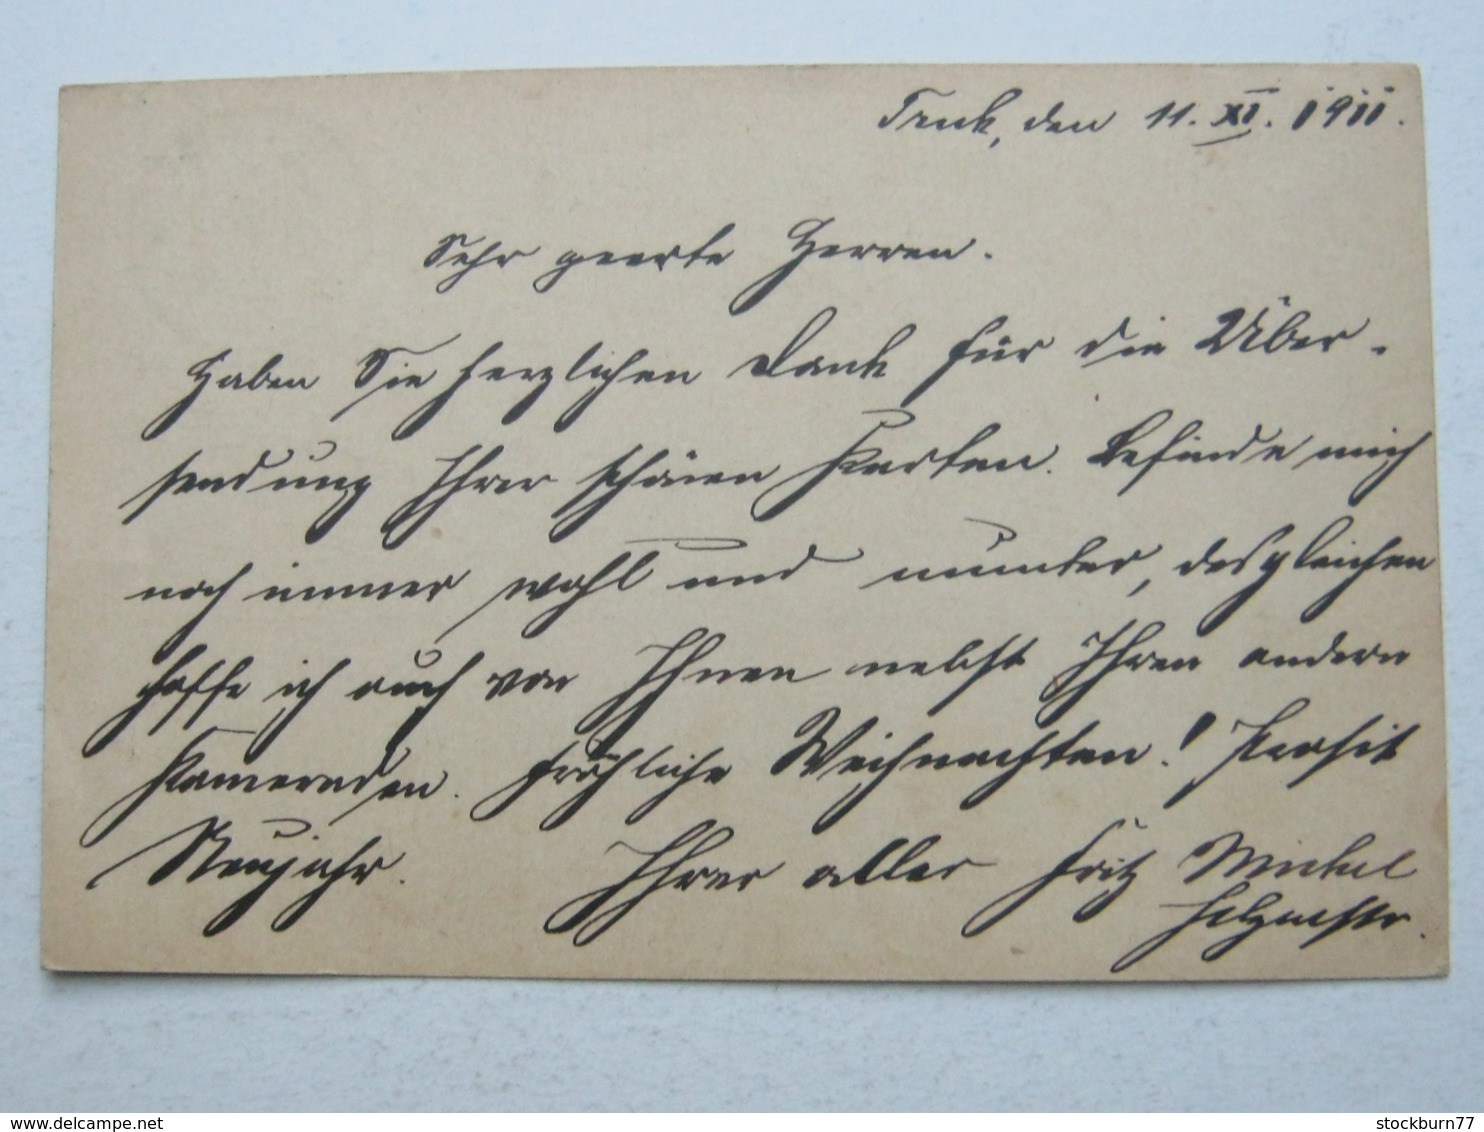 Truk, den 11. XI. 1911.
Sehr geerte Herren.
Haben Sie herzlichen Dank für die Über-
sendung Ihrer schönen Karten. Befinde mich
noch immer wohl und munter, desgleichen
hoffe ich auch von Ihnen nebst Ihren andern
Kameraden. Fröhliche Weihnachten! Prosit
Neujahr. Ihrer aller Fritz Winkel
delcampe.net
stockburn77